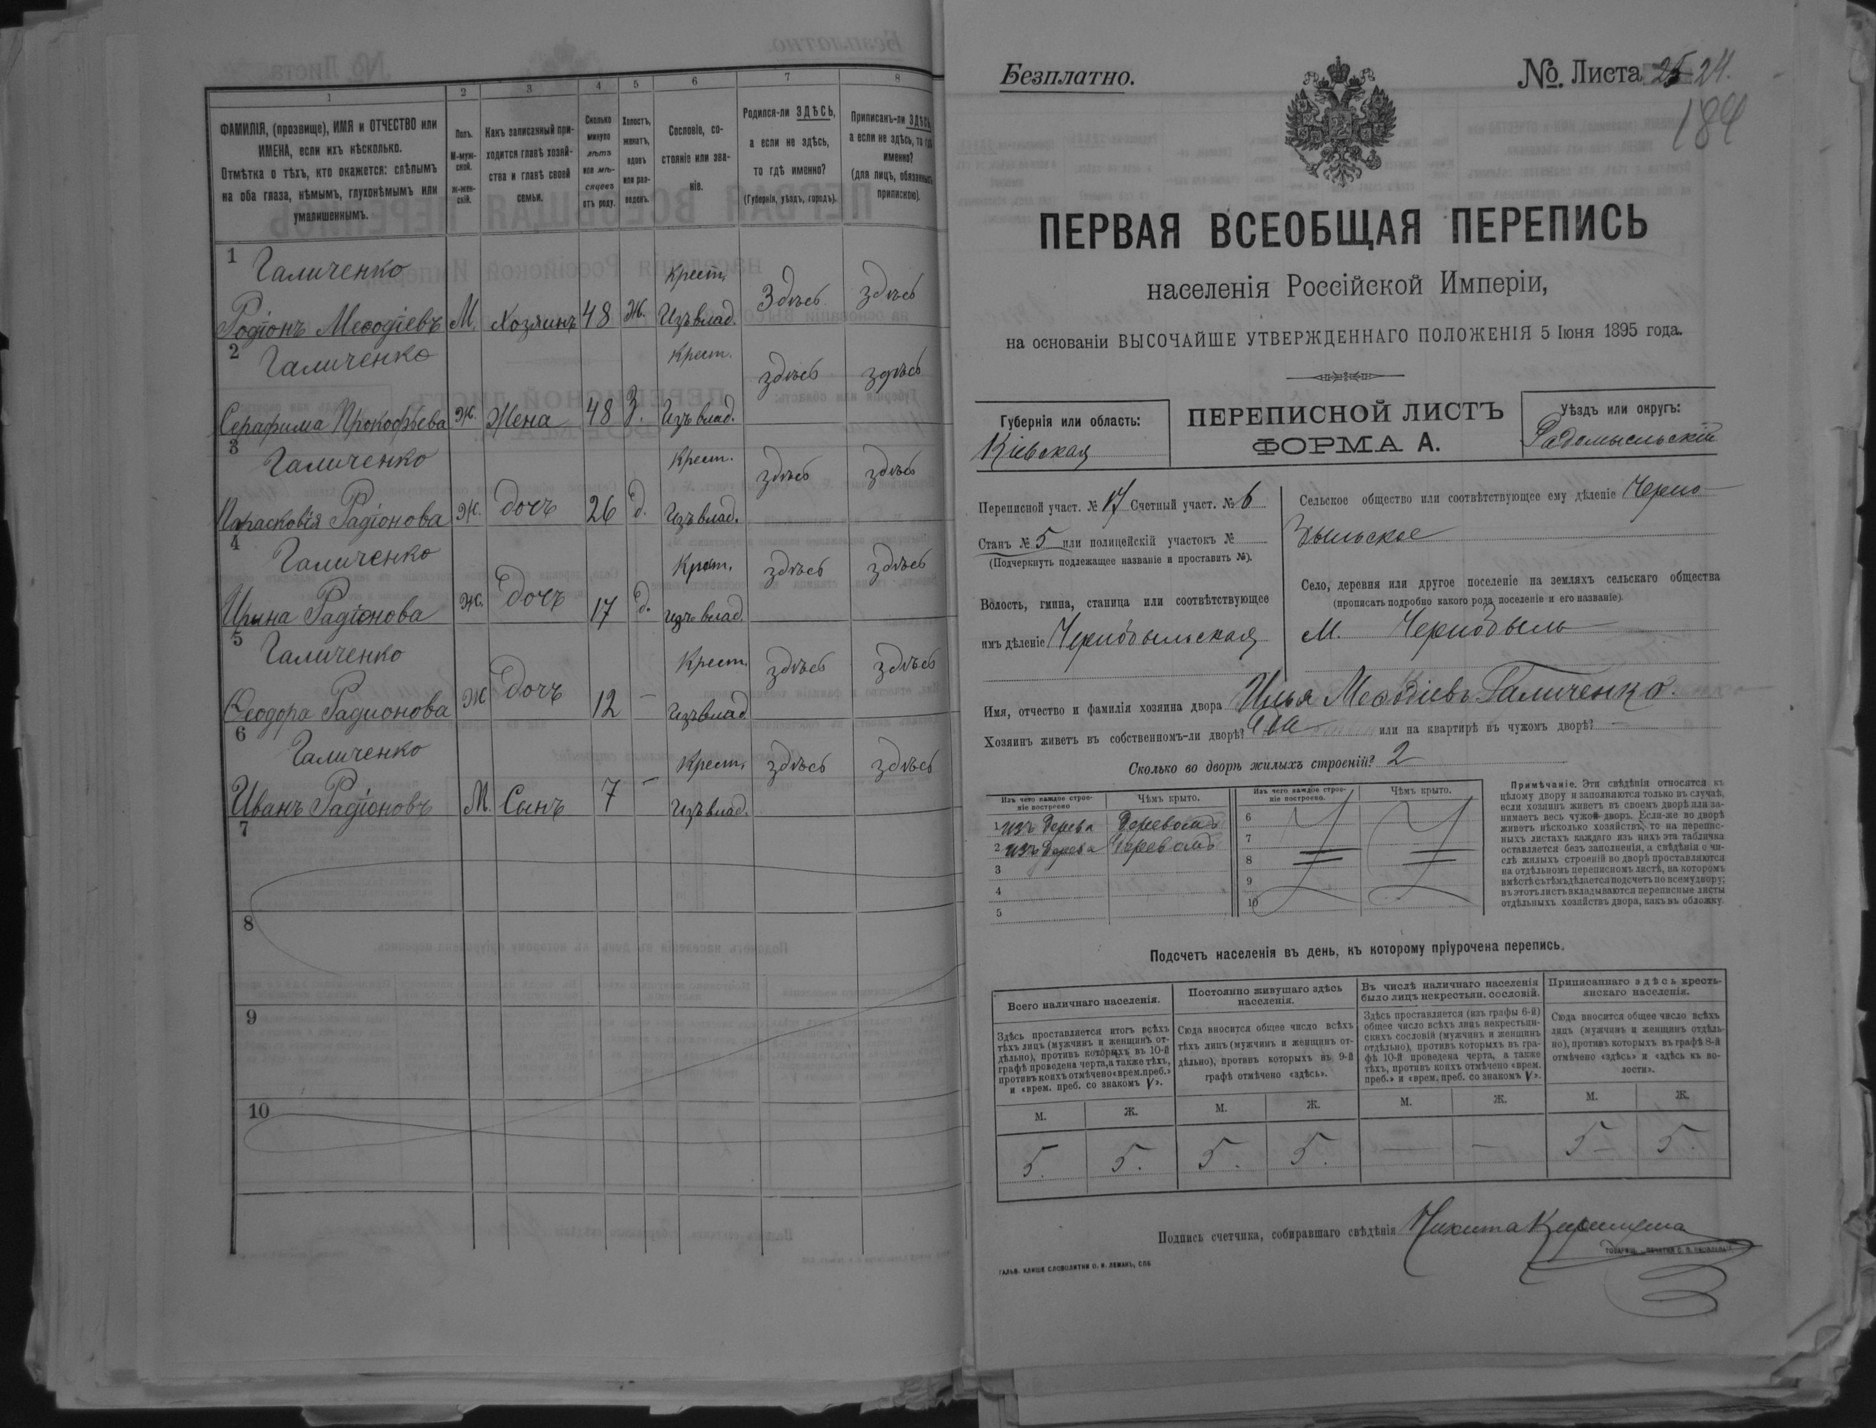 1 2 3 4 5 6 7 8
ФАМИЛІЯ, (прозвище), ИМЯ и ОТЧЕСТВО или ИМЕНА, если ихъ нѣсколько.
Отмѣтка о тѣхъ, кто окажется: слѣпымъ на оба глаза, нѣмымъ, глухонѣмымъ или умалишеннымъ.
Полъ. М-мужской. Ж-женскій.
Какъ записанный приходится главѣ хозяйства и главѣ своей семьи.
Сколько минуло лѣтъ или мѣсяцевъ отъ роду.
Холостъ, женатъ, вдовъ или разведенъ.
Сословіе, состояніе или званіе.
Родился-ли ЗДѢСЬ, а если не здѣсь, то гдѣ именно? (Губернія, уѣздъ, городъ).
Приписанъ-ли ЗДѢСЬ, а если не здѣсь, то гдѣ именно? (для лицъ, обязанныхъ припискою).
1 Галиченко
Родіонъ Меѳодіевъ М. Хозяинъ 48 Ж. Крест. Изъ влад. Здѣсь здѣсь
2 Галиченко
Серафима Прокофьева Ж. Жена 48 З. Крест. Изъ влад. здѣсь здѣсь
3 Галиченко
Парасковія Радіонова Ж. Дочь 26 д. Крест. Изъ влад. здѣсь здѣсь
4 Галиченко
Ирина Радіонова Ж. Дочь 17 д. Крест. изъ влад. здѣсь здѣсь
5 Галиченко
Ѳеодора Радионова Ж Дочь 12 — Крест. изъ влад здѣсь здѣсь
6 Галиченко
Иванъ Радіоновъ М. Сынъ 7 — Крест. Изъ влад. здѣсь здѣсь
7
8
9
10
Безплатно.
№ Листа 25 24.
184
ПЕРВАЯ ВСЕОБЩАЯ ПЕРЕПИСЬ
населенія Россійской Имперіи,
на основаніи ВЫСОЧАЙШЕ УТВЕРЖДЕННАГО ПОЛОЖЕНІЯ 5 Іюня 1895 года.
Губернія или область:
Кіевская
ПЕРЕПИСНОЙ ЛИСТЪ
ФОРМА А.
Уѣздъ или округъ:
Радомысльскій
Переписной участ. № 17 Счетный участ. № 6
Станъ № 5 или полицейскій участокъ №
(Подчеркнуть подлежащее названіе и проставить №).
Волость, гмина, станица или соотвѣтствующее
имъ дѣленіе Чернобыльская
Сельское общество или соотвѣтствующее ему дѣленіе Черно-
быльское
Село, деревня или другое поселеніе на земляхъ сельскаго общества
(прописать подробно какого рода поселеніе и его названіе)
М. Чернобыль
Имя, отчество и фамилія хозяина двора Илья Меѳодіевъ Галиченко.
Хозяинъ живетъ въ собственномъ-ли дворѣ? или на квартирѣ въ чужомъ дворѣ? —
Сколько во дворѣ жилыхъ строеній? 2
Изъ чего каждое строеніе построено Чѣмъ крыто. Изъ чего каждое строеніе построено. Чѣмъ крыто.
1 изъ дерева Деревомъ 6
2 изъ дерева Деревомъ 7
3 8
4 9
5 10
Примѣчаніе. Эти свѣдѣнія относятся къ
цѣлому двору и заполняются только въ случаѣ,
если хозяинъ живетъ въ своемъ дворѣ или за-
нимаетъ весь чужой дворъ. Если-же во дворѣ
живетъ нѣсколько хозяйствъ, то на перепис-
ныхъ листахъ каждаго изъ нихъ эта табличка
оставляется безъ заполненія, а свѣдѣнія о чи-
слѣ жилыхъ строеній во дворѣ проставляются
на отдѣльномъ переписномъ листѣ, на которомъ
вмѣстѣ съ тѣмъ дѣлается подсчетъ по всему двору;
въ этотъ листъ вкладываются переписные листы
отдѣльныхъ хозяйствъ двора, какъ въ обложку.
Подсчетъ населенія въ день, къ которому пріурочена перепись.
Всего наличнаго населенія.
Здѣсь проставляется итогъ всѣхъ
тѣхъ лицъ (мужчинъ и женщинъ от-
дѣльно), противъ которыхъ въ 10-й
графѣ проведена черта, а также тѣхъ,
противъ коихъ отмѣчено «врем. преб.»
и «врем. преб. со знакомъ V».
Постоянно живущаго здѣсь населенія.
Сюда вносится общее число всѣхъ
тѣхъ лицъ (мужчинъ и женщинъ от-
дѣльно), противъ которыхъ въ 9-й
графѣ отмѣчено «здѣсь».
Въ числѣ наличнаго населенія
было лицъ некрестьян. сословій.
Здѣсь проставляется (изъ графы 6-й)
общее число всѣхъ лицъ некрестьян-
скихъ сословій (мужчинъ и женщинъ
отдѣльно), противъ которыхъ въ гра-
фѣ 10-й проведена черта, а также
тѣхъ, противъ коихъ отмѣчено «врем.
преб.» и «врем. преб. со знакомъ V».
Приписаннаго здѣсь кресть-
янскаго населенія.
Сюда вносится общее число всѣхъ
лицъ (мужчинъ и женщинъ отдѣль-
но), противъ которыхъ въ графѣ 8-й
отмѣчено «здѣсь» и «здѣсь въ во-
лости».
М. Ж. М. Ж. М. Ж. М. Ж.
5. 5. 5. 5. — — 5 5.
Подпись счетчика, собиравшаго свѣдѣнія Никита
ГАЛЬВ. КЛИШЕ СЛОВОЛИТНИ О. И. ЛЕМАНЪ, СПБ